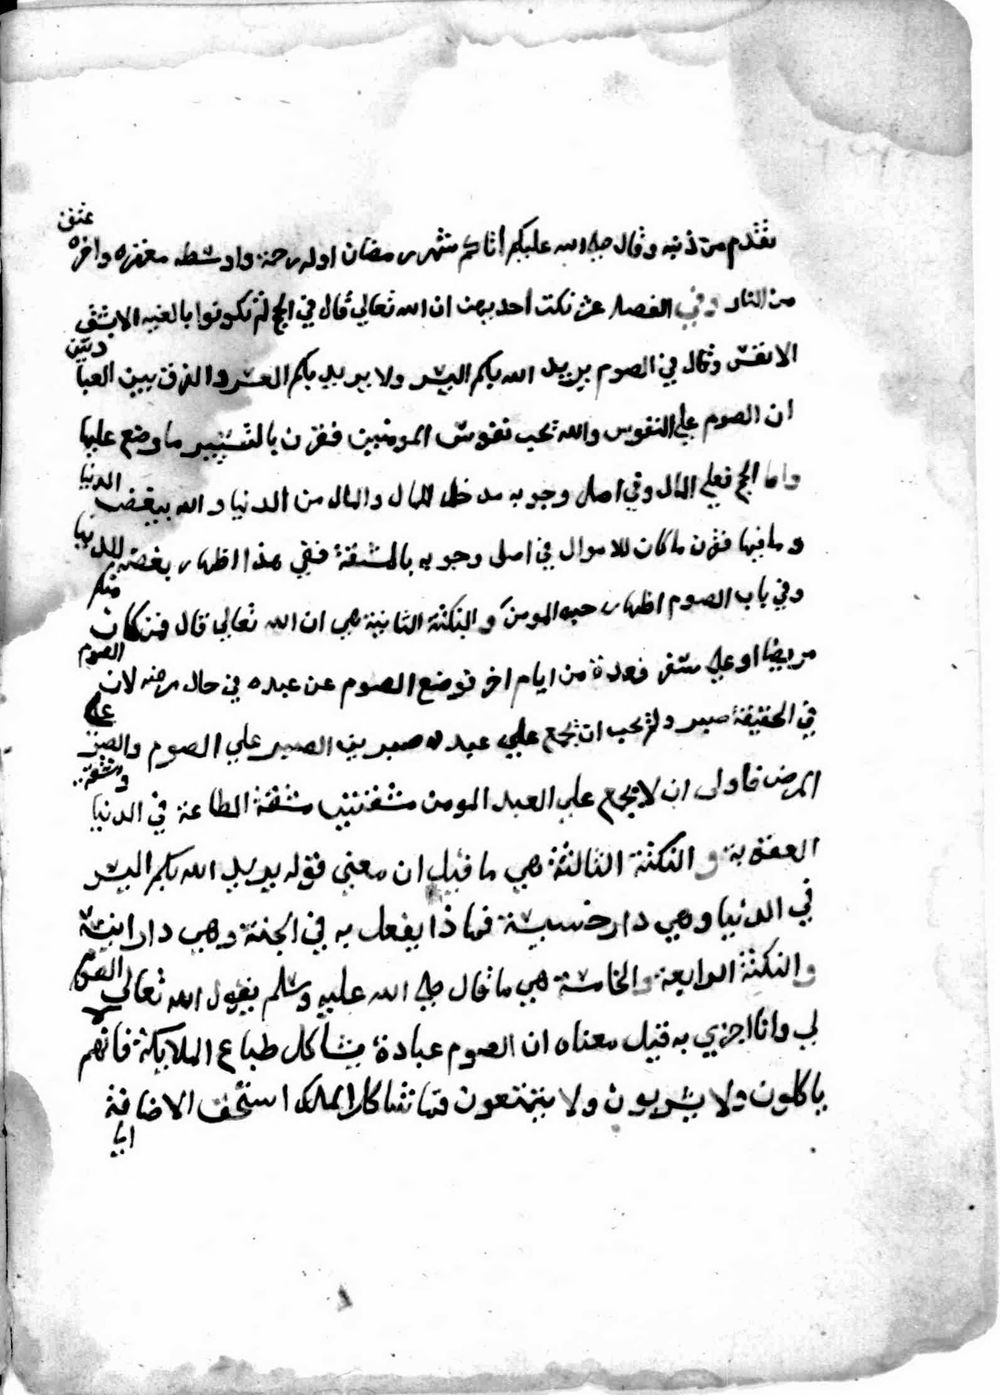 تقدم من ذنبه وقال صلى الله عليه اتاكم شهر رمضان اوله رحمة واوسطه مغفره واخره عتق
من النار وفي الفصل عشر نكت احديهن ان الله تعالى قال في الحج لم تكونوا بالغيه الا بشق
الانفس وقال في الصوم يريد الله بكم اليسر ولا يريد بكم العسر والفرق بين العبادتين
ان الصوم على النفوس والله يحب نفوس المومنين فقرن بالتيسير ما وضع عليها
واما الحج فعلى المال وفي اصل وجوبه مدخل للمال والمال من الدنيا والله يبغض الدنيا
وما فيها فقرن ما كان للاموال في اصل وجوبه بالمشقة ففي هذا اظهار بغضه للدنيا
وفي باب الصوم اظهار حبه المومن والنكتة الثانية هي ان الله تعالى قال فمن كان منكم
مريضا او على سفر فعدة من ايام اخر فوضع الصوم عن عبده في حال مرضه لان الصوم
في الحقيقة صبر ولم يحب ان يجمع على عبده صبرين الصبر على الصوم والصبر على
المرض فاولى ان لا يجمع على العبد المومن مشقتين مشقة الطاعة في الدنيا ومشقة
العقوبة والنكتة الثالثة هي ما قيل ان معنى قوله يريد الله بكم اليسر
في الدنيا وهي دار خسيسة فماذا يفعل به في الجنة وهي دار
والنكتة الرابعة والخامسة هي ما قال صلى الله عليه وسلم يقول الله تعالى الصوم
لي وانا اجزي به قيل معناه ان الصوم عبادة يشاكل طباع الملايكة فانهم لا
ياكلون ولا يشربون ولا يتمتعون فما تشاكل الملك استحق الاضافة